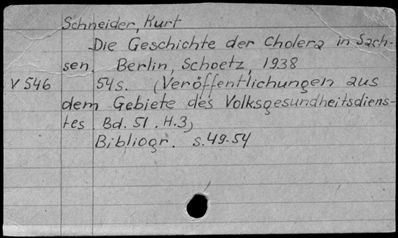 Schneider, Kurt
Die Geschichte der Cholera in Sach-
sen. Berlin, Schoetz, 1938
V 546 54s. (Veröffentlichungen aus
dem Gebiete des Volksgesundheitsdiens-
tes. Bd. 51. H.3)
Bibliogr. s.49-54